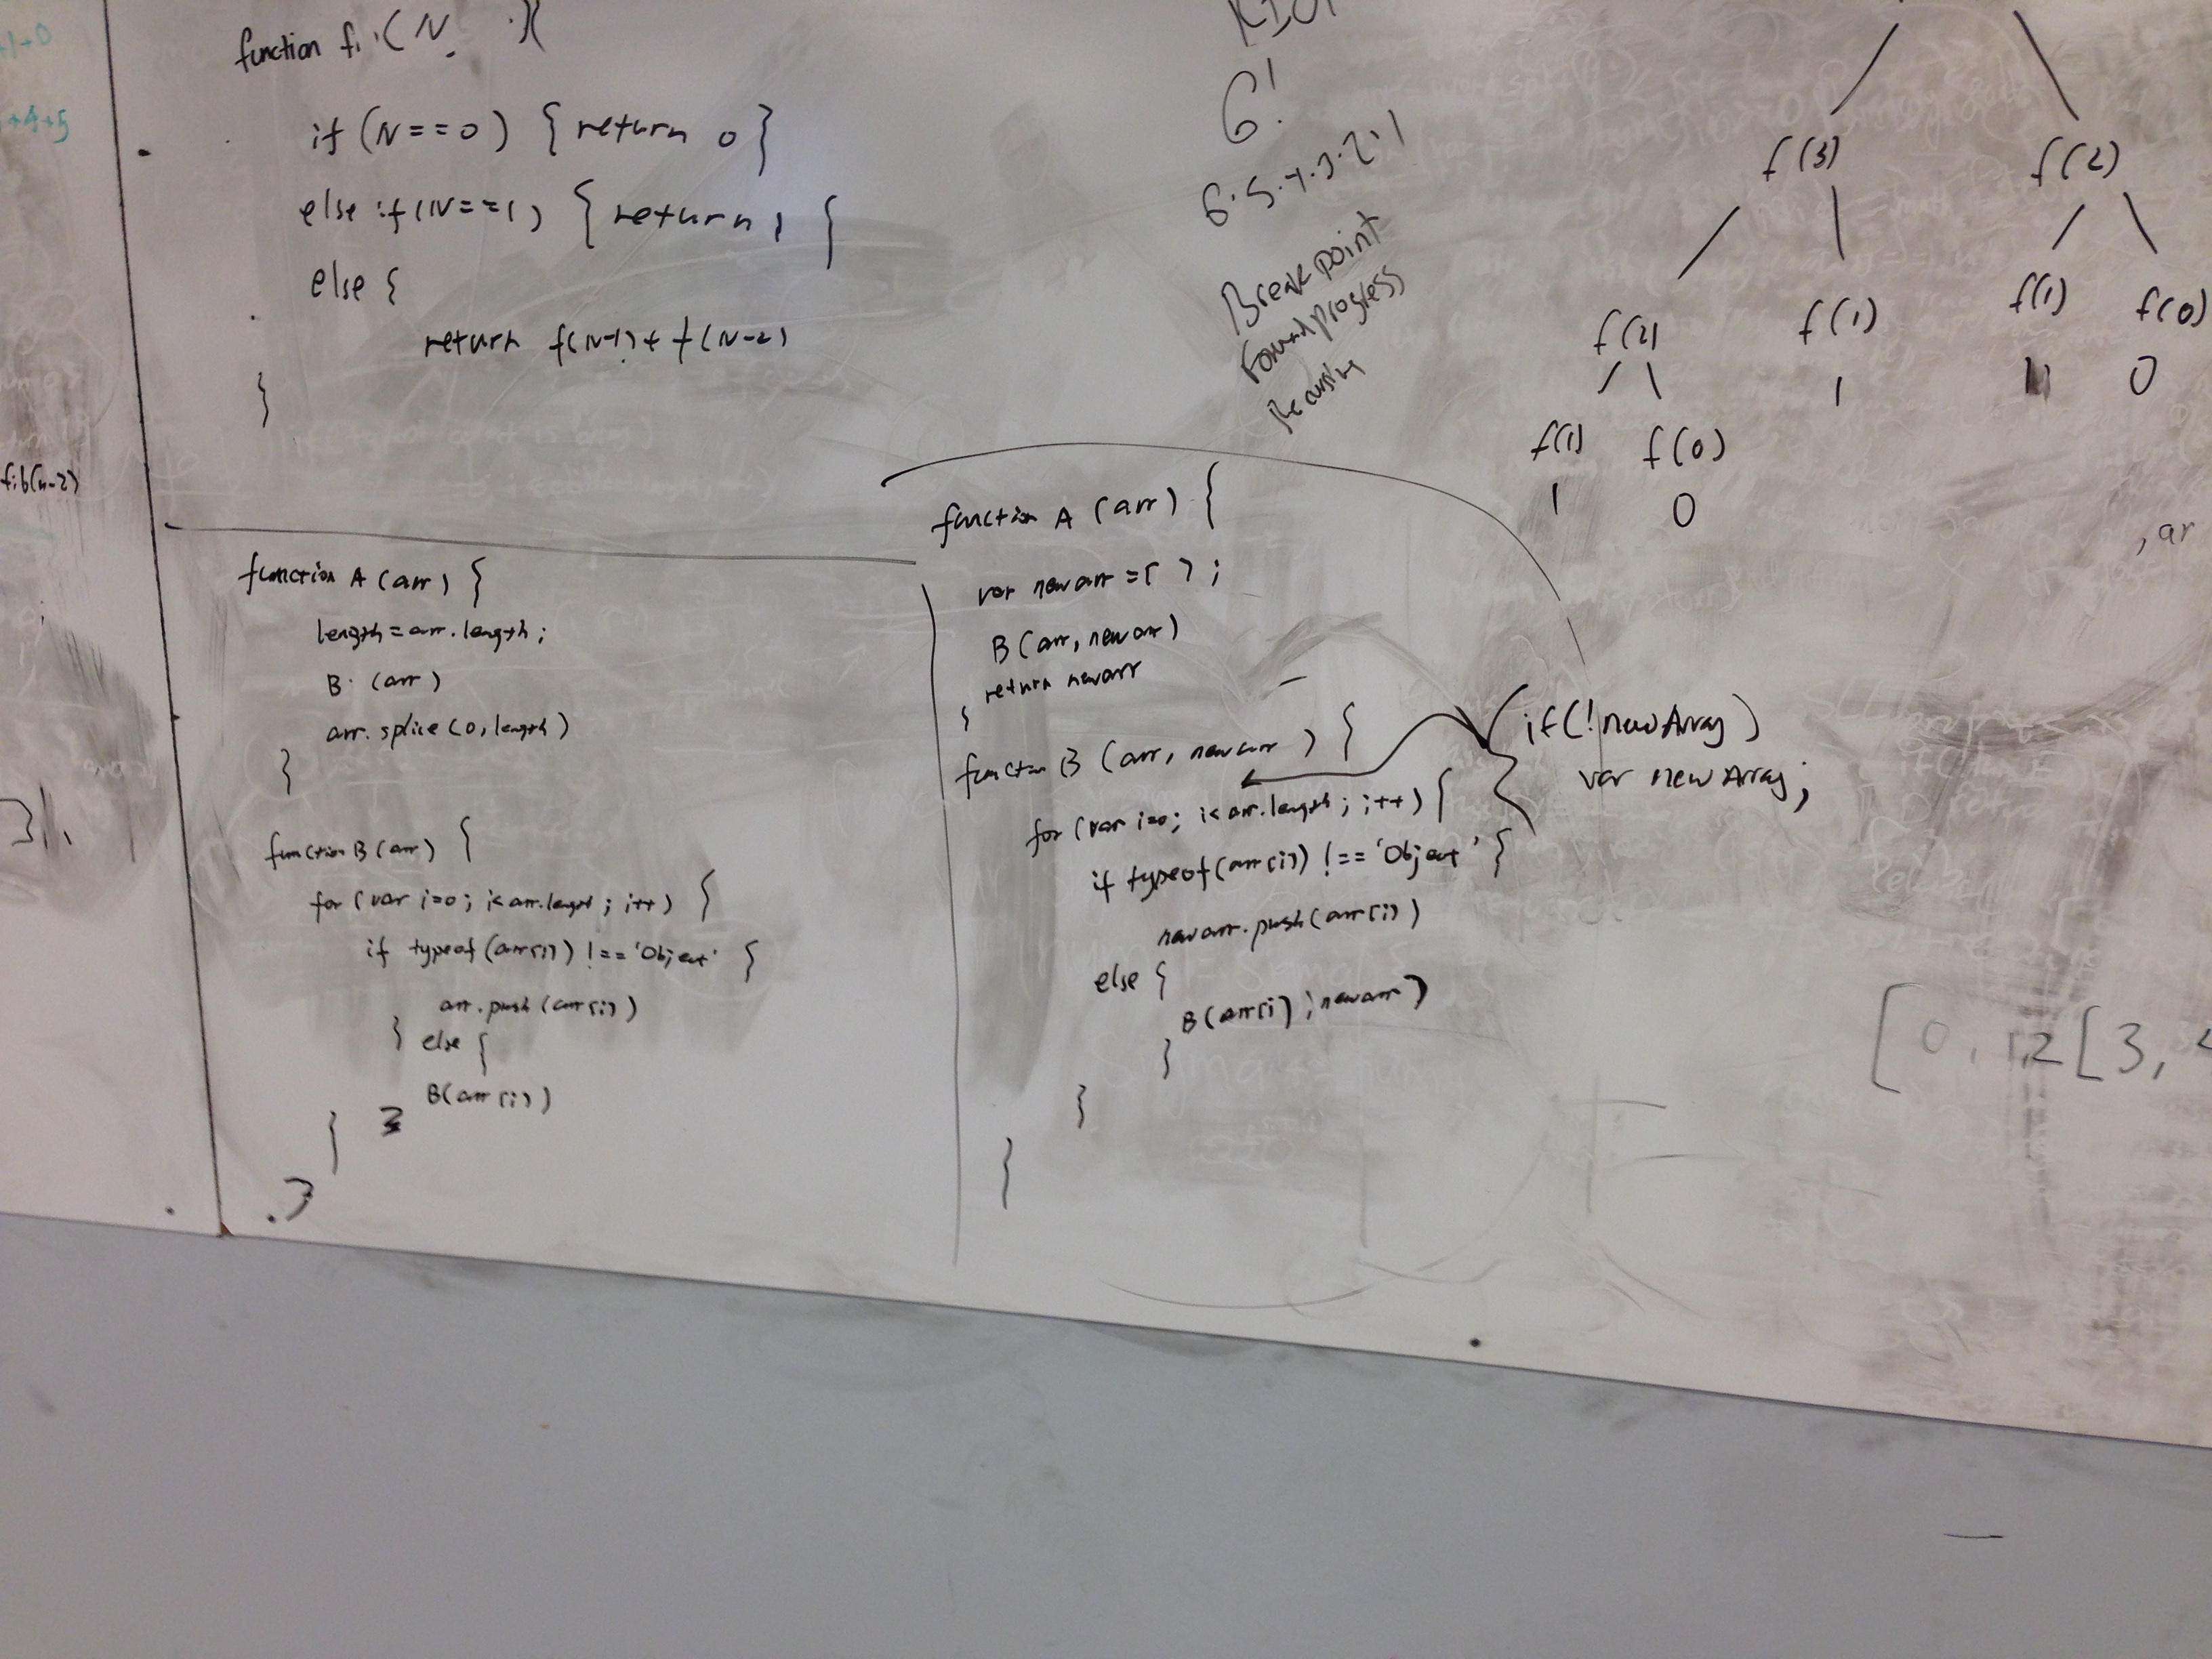 +1+0
+4+5
fib(n-2)
function f(N ){
if (N==0) { return 0}
else if(N==1) { return 1 {
else {
return f(N-1)+ f(N-2)
}
6!
6.5.4.3.2.1
Break point
Forward progress
Recursing
f(3) f(2)
f(2) f(1) f(1) f(0)
1 1 0
f(1) f(0)
1 0
, ar
function A (arr) {
length=arr.length;
B (arr)
arr.splice(0,length)
}
function B (arr) {
for (var i=0; i<arr.length; i++) {
if typeof(arr[i]) !== 'Object' {
arr.push(arr[i])
} else {
B(arr[i])
}
}
}
function A (arr) {
var newarr = [ ];
B (arr, newarr)
return newarr
}
function B (arr, newarr) {
for (var i=0; i<arr.length; i++) {
if typeof(arr[i]) !== 'Object' {
newarr.push(arr[i])
else {
B(arr[i]; newarr)
}
}
}
if(!newArray)
var newArray;
[0, 1,2[3,